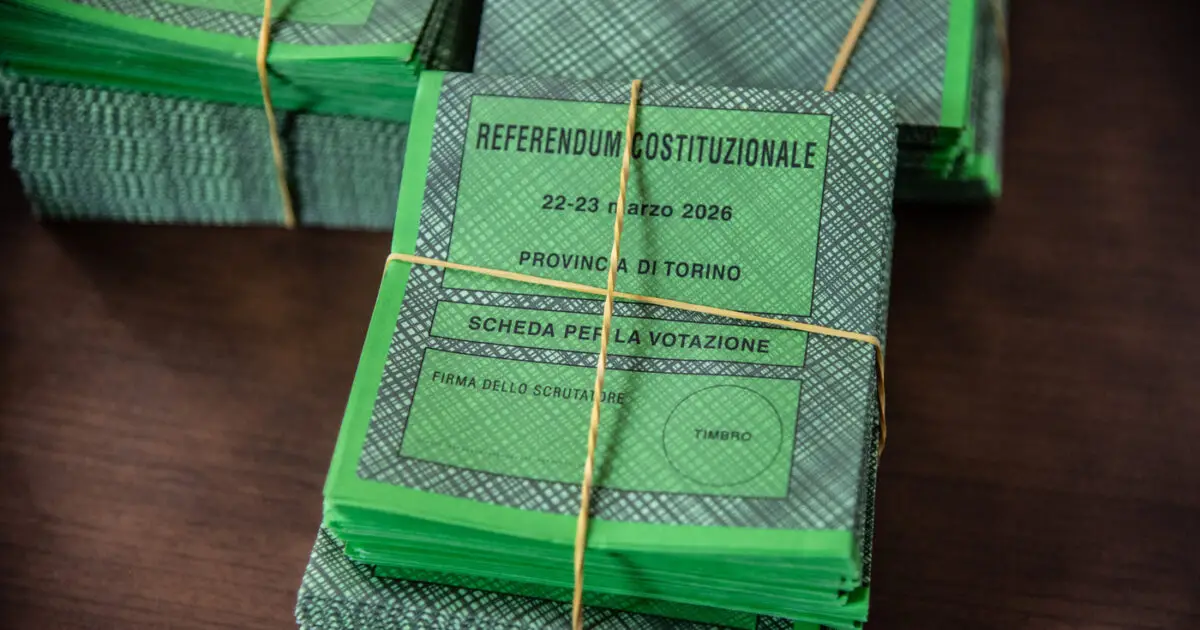 REFERENDUM COSTITUZIONALE
22-23 marzo 2026
PROVINCIA DI TORINO
SCHEDA PER LA VOTAZIONE
FIRMA DELLO SCRUTATORE
TIMBRO